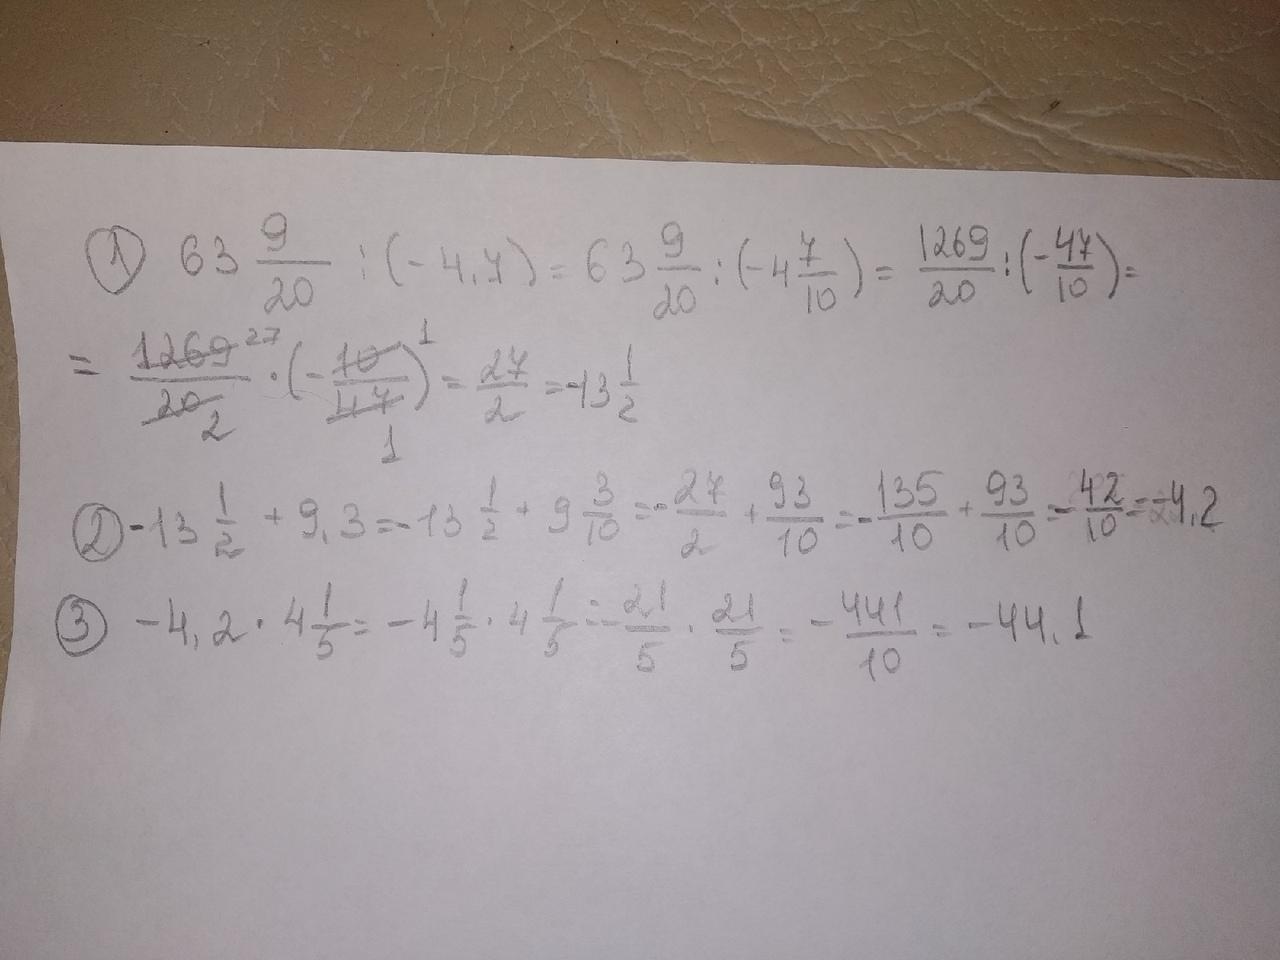 ① 63 9/20 : (-4,7) = 63 9/20 : (-4 7/10) = 1269/20 : (-47/10) =
= 1269 27/20 2 · (-10 1/47 1) = 27/2 = -13 1/2
② -13 1/2 + 9,3 = -13 1/2 + 9 3/10 = -27/2 + 93/10 = -135/10 + 93/10 = -42/10 = -4,2
③ -4,2 · 4 1/5 = -4 1/5 · 4 1/5 = -21/5 · 21/5 = -441/10 = -44,1